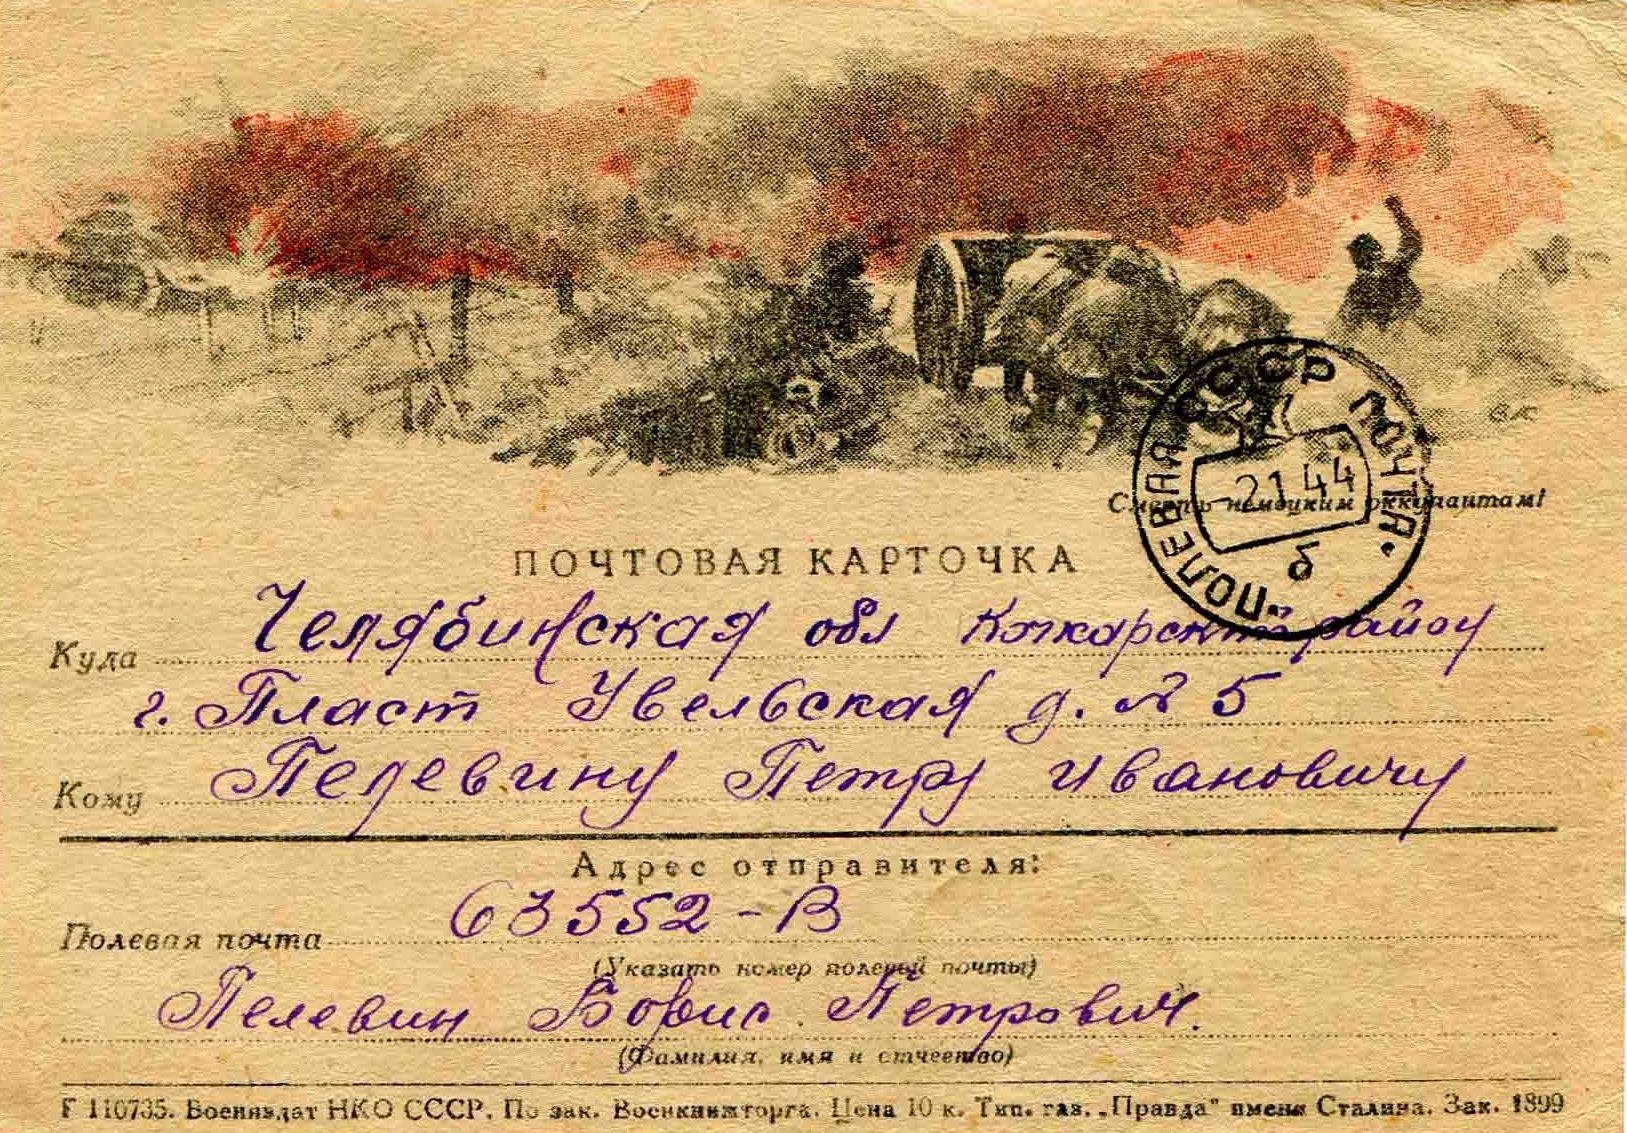 СССР ПОЛЕВАЯ ПОЧТА
-2 1 44
б
ВК
Смерть немецким оккупантам!
ПОЧТОВАЯ КАРТОЧКА
Куда Челябинская обл Кочкарский район
г. Пласт Увельская д. № 5
Кому Пелевину Петру Ивановичу
Адрес отправителя:
Полевая почта 63552-В
(Указать номер полевой почты)
Пелевин Борис Петрович.
(Фамилия, имя и отчество)
Г 110735. Воениздат НКО СССР. По зак. Военкнижторга. Цена 10 к. Тип. газ. „Правда" имени Сталина. Зак. 1899